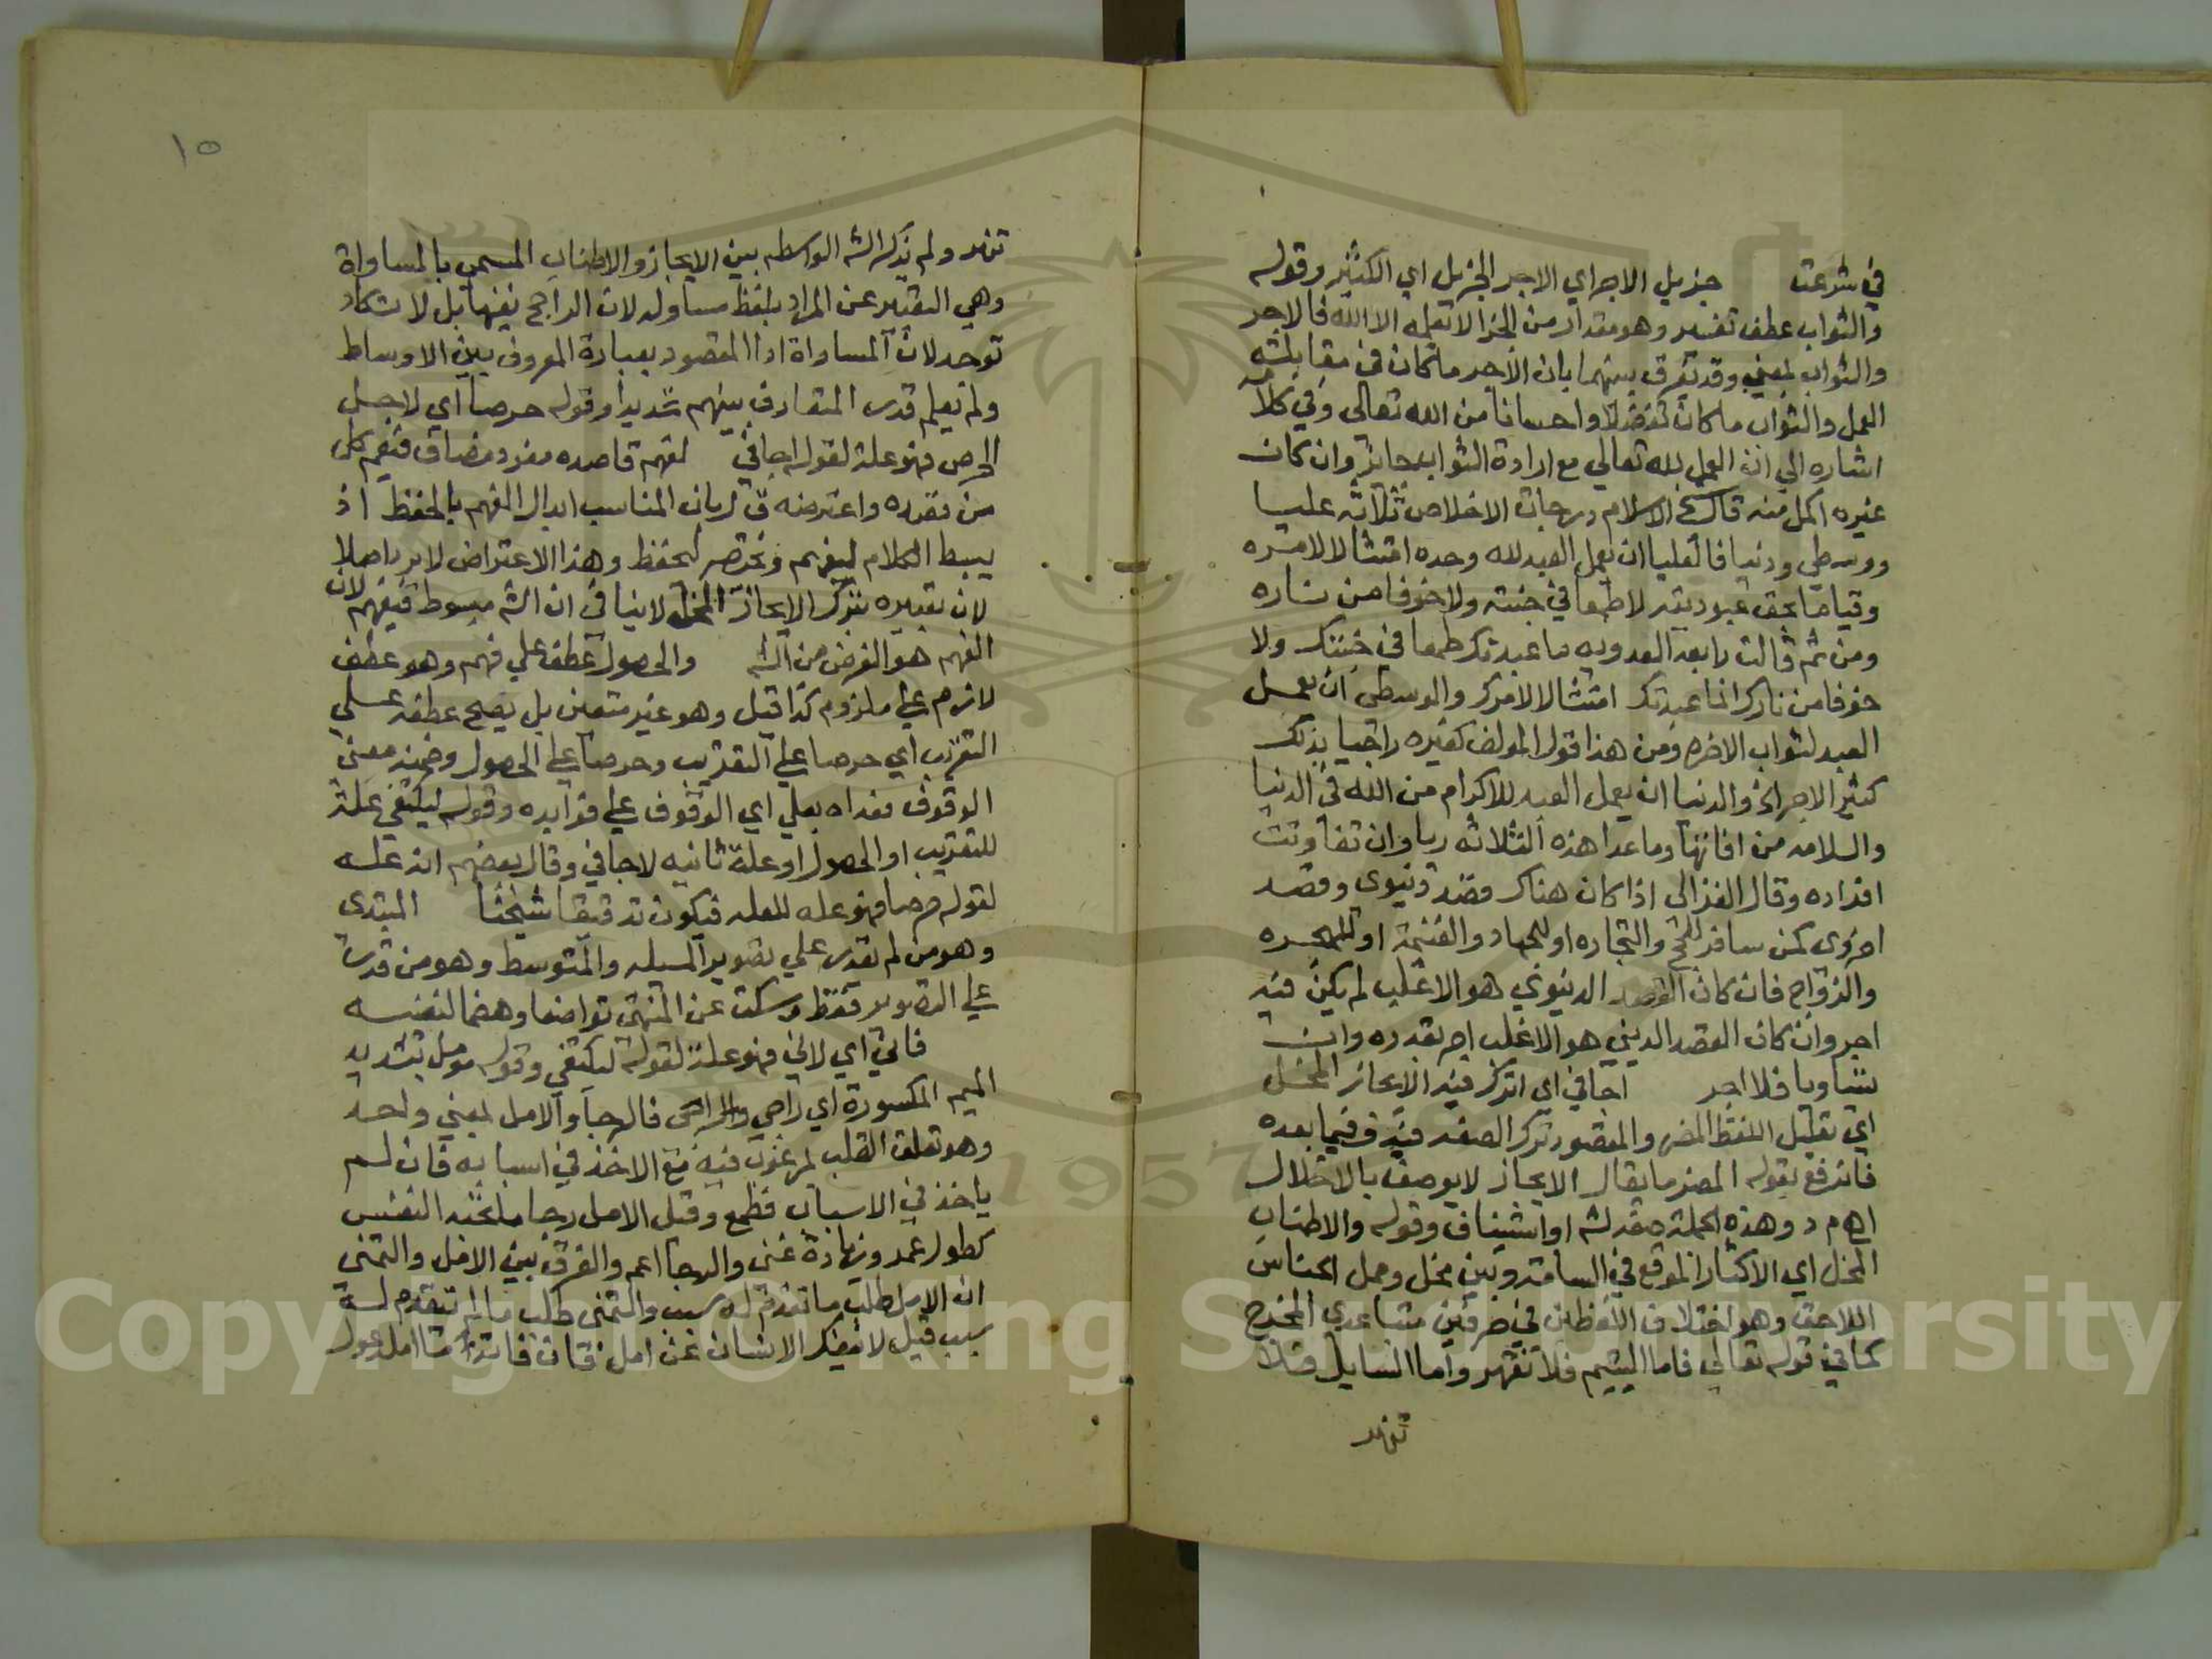 في شرعت جزيل الاجر اي الاجر الجزيل اي الكثير وقوله
والثواب عطف تفسير وهو مقدار من الجزا لا يعلمه الا الله فالاجر
والثواب بمعني وقد يفرق بينهما بان الاجر ما كان في مقابلته
العمل والثواب ما كان تفضلا واحسانا من الله تعالى وفي كلامه
اشاره الي ان العمل لله تعالي مع ارادة الثواب جائز وان كان
غيره اكمل منه قال شيخ الاسلام درجات الاخلاص ثلاثه عليا
ووسطي ودنيا فالعليا ان يعمل العبد لله وحده امتثالا لامره
وقياما بحق عبوديته لا طمعا في جنته ولا خوفا من ناره
ومن ثم قالت رابعه العدويه ما عبدتك طمعا في جنتك ولا
خوفا من نارك انما عبدتك امتثالا لامرك والوسطي ان يعمل
العبد لثواب الاخره ومن هذا قول المولف كغيره راجيا بذلك
كثير الاجر الخ والدنيا ان يعمل العبد للاكرام من الله في الدنيا
والسلامه من افاتها وما عدا هذه الثلاثه ريا وان تفاوتت
افراده وقال الغزالي اذا كان هناك قصد دنيوي وقصد
اخروي كمن سافر للحج والتجاره او للجهاد والغنيمة او للهجره
والزواج فان كان القصد الدنيوي هو الاغلب لم يكن فيه
اجر وان كان القصد الديني هو الاغلب اجر بقدره وان
تساويا فلا اجر اجافي اي اترك فيه الايجاز المخل
اي تقليل اللفظ المضر والمقصود ترك الصفه فيه وفيما بعده
فاندفع بقوله المضر ما يقال الايجاز لا يوصف بالاخلال
اهم د وهذه الجملة صفة لشرح او استيناف وقوله والاطناب
الممل اي الاكثار الموقع في السامة وبين مخل وممل الجناس
اللاحق وهو اختلاف اللفظين في حرفين متباعدي المخرج
كما في قوله تعالي فاما اليتيم فلا تقهر واما السايل فلا
تنهر
١٥
تنهر ولم يذكر الشه الواسطه بين الايجاز والاطناب المسمي بالمساواة
وهي التعبير عن المراد بلفظ مساو له لان الراجح نفيها بل لا تكاد
توجد لان المساواة اداا المقصود بعبارة المعروف بين الاوساط
ولم يعلم قدر المتعارف بينهم شديدا وقوله حرصا اي لاجل
الحرص فهو علة لقوله اجافي لفهم قاصده مفرد مضاف فيعم كل
من قصده واعترضه ق ل بان المناسب ابدال الفهم بالحفظ اذ
يبسط الكلام ليفهم ويختصر ليحفظ وهذا الاعتراض لا يرد اصلا
لان تعبيره بترك الايجاز المخل لا ينافي ان الشه مبسوط فيفهم لان
الفهم هو الغرض من الشه والحصول عطف علي فهم وهو عطف
لازم علي ملزوم كذا قيل وهو غير متعين بل يصح عطفه علي
التقرب اي حرصا علي التقريب وحرصا علي الحصول وضمنه معني
الوقوف فعداه بعلي اي الوقوف علي فوايده وقوله ليكتفي علة
للتقريب او الحصول او علة ثانيه لاجافي وقال بعضهم انه علة
لقوله حرصا فهو عله للعله فيكون تدقيقا شيخنا المبتدي
وهو من لم يقدر علي تصوير المسيله والمتوسط وهو من قدر
علي التصوير فقط وسكت عن المنتهي تواضعا وهضما لنفسه
فاني اي لاني فهو علة لقوله ليكتفي وقوله مومل بتشديد
الميم المكسورة اي راجي فالرجا والامل بمعني واحد
وهو تعلق القلب بمرغوب فيه مع الاخذ في اسبابه فان لم
ياخذ في الاسباب فطمع وقيل الامل رجا ما تحبه النفس
كطول عمر وزيادة غني والرجا اعم والفرق بين الامل والتمني
ان الامل طلب ما تقدم له سبب والتمني طلب ما لم يتقدم له
سبب قيل لا ينفك الانسان عن امل فان فاته ما امل عول